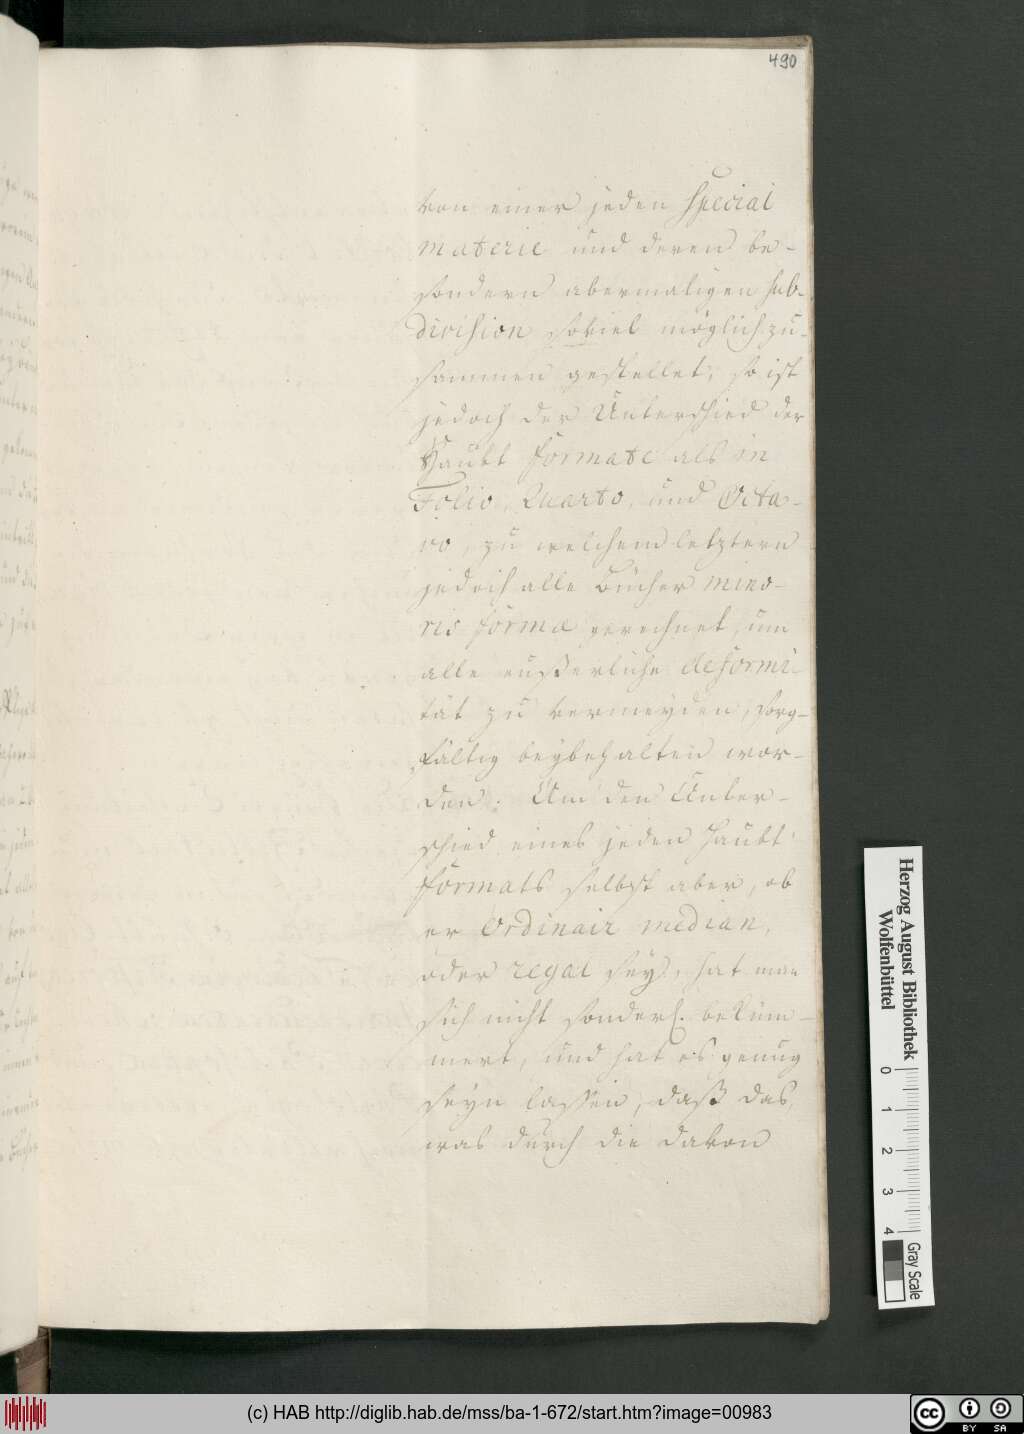 490
von einer jeden Special
materie und deren be-
sondern abermaligen sub-
division soviel möglich zu-
sammen gestellet, so ist
jedoch der Unterschied der
Haubt formate als in
Folio, Quarto, und Octa-
vo, zu welchem letztern
jedoch alle Bücher mino-
ris formæ gerechnet, um
alle eußerliche deformi-
tät zu vermeyden, sorg-
fältig beybehalten wor-
den. Um den Unter-
schied eines jeden Haubt
formats selbst aber, ob
er Ordinair median,
oder regal sey, hat man
sich nicht sonderl. beküm-
mert, und hat es genug
seyn lassen, daß das,
was durch die davon
Herzog August Bibliothek
Wolfenbüttel
0 1 2 3 4
Gray Scale
(c) HAB http://diglib.hab.de/mss/ba-1-672/start.htm?image=00983
cc BY SA